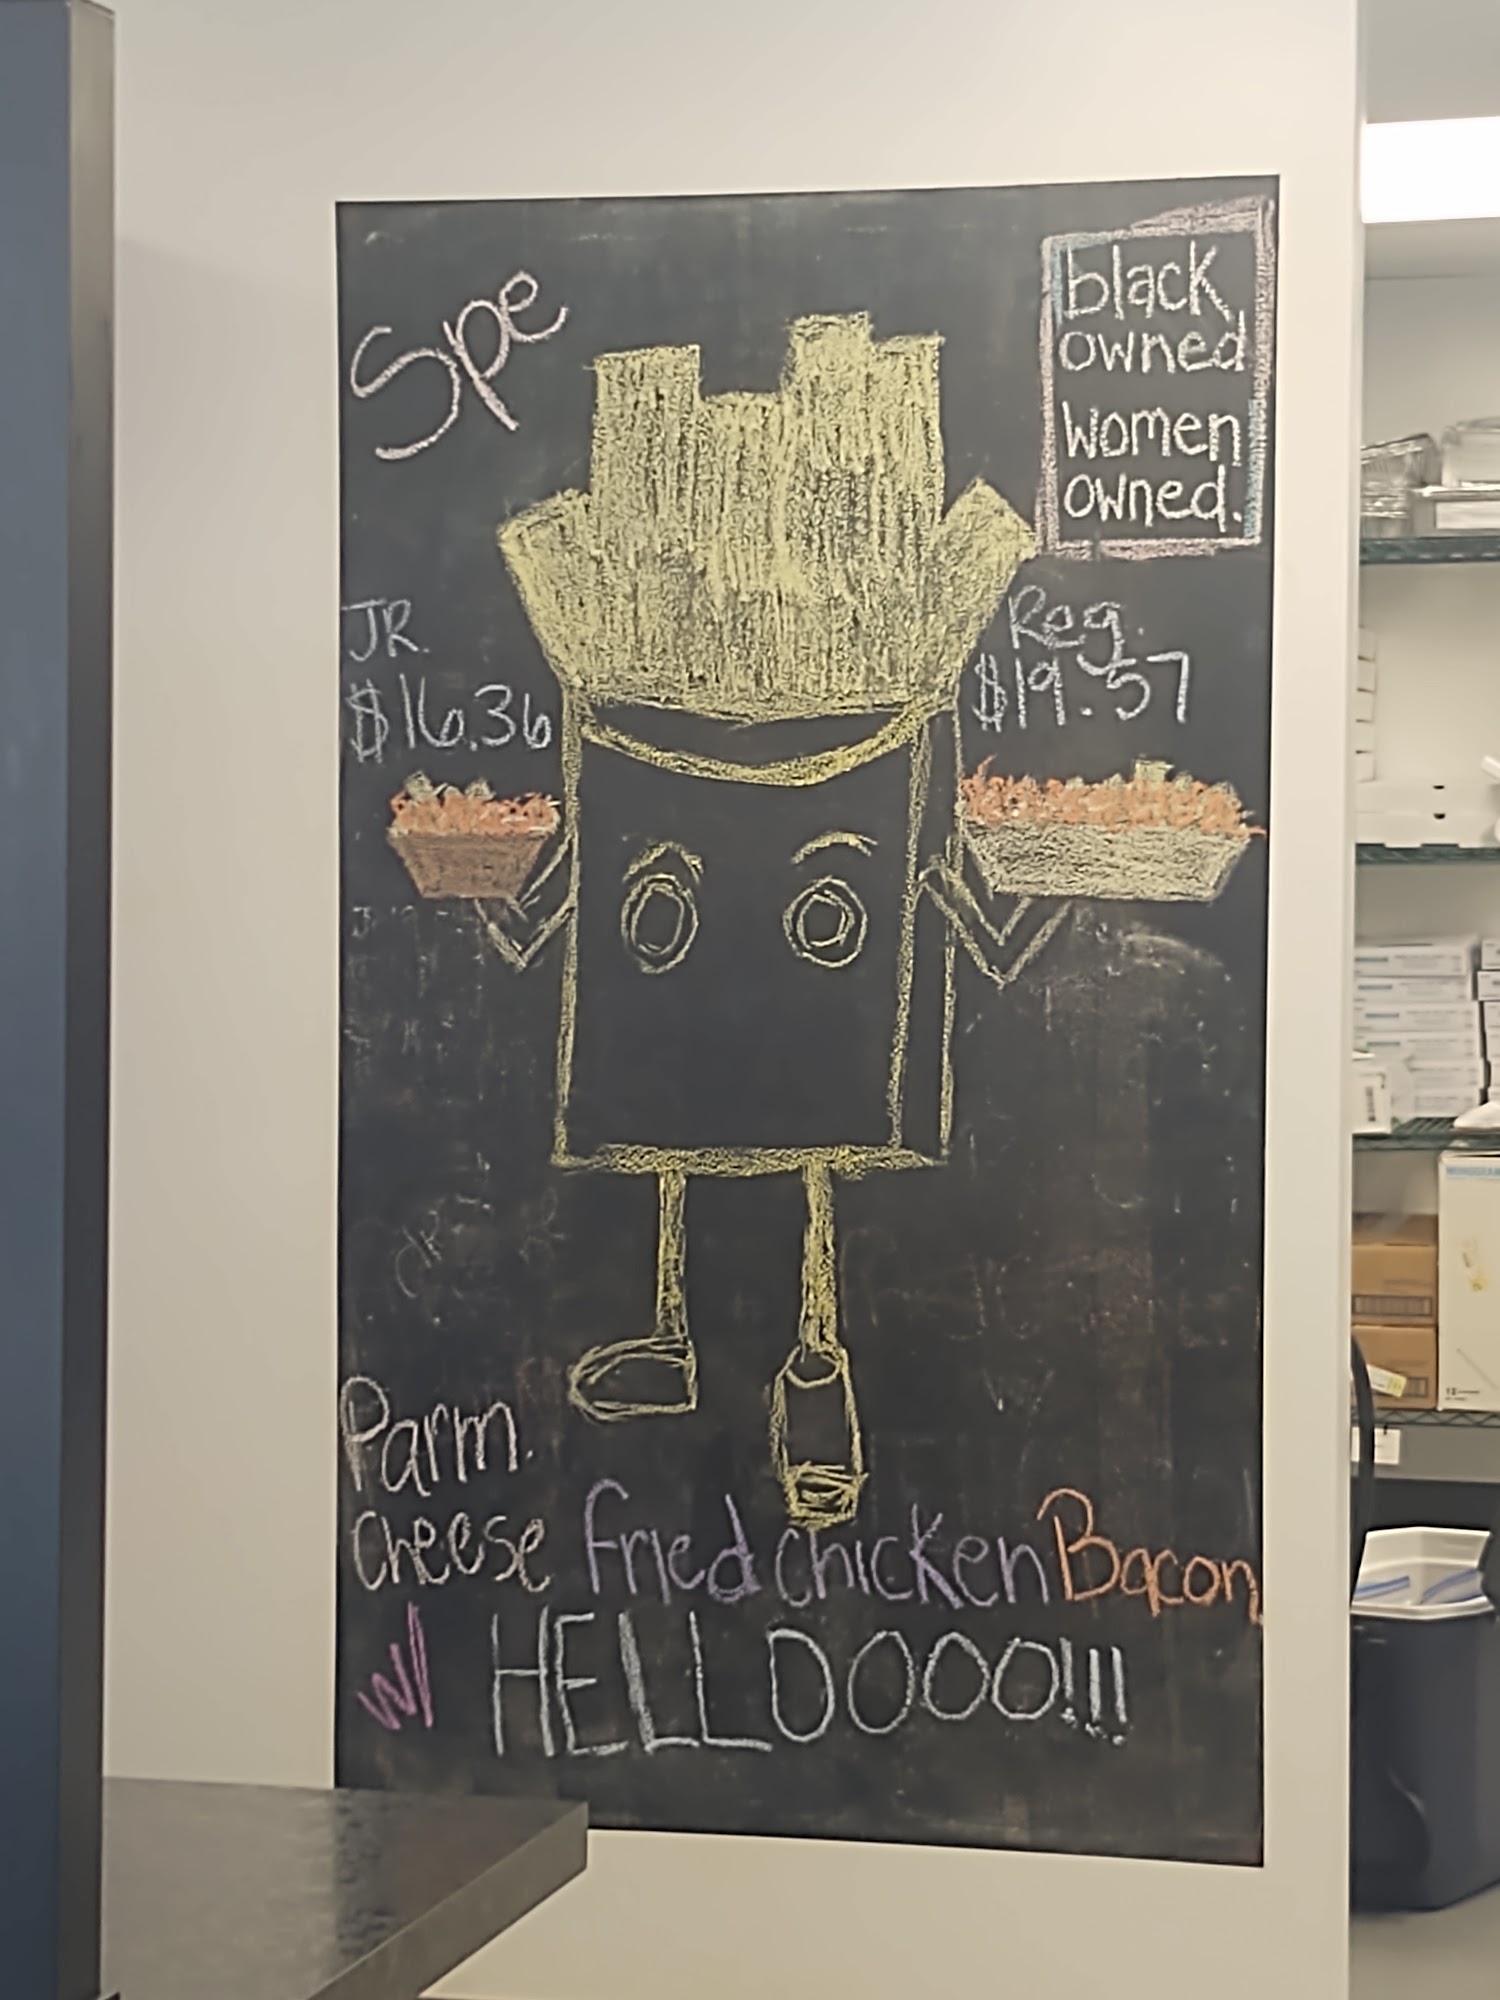 Spe
black
owned
women
owned.
JR.
$16.36
Reg.
$19.57
Parm.
cheese fried chicken Bacon
w/ HELLOOOO!!!